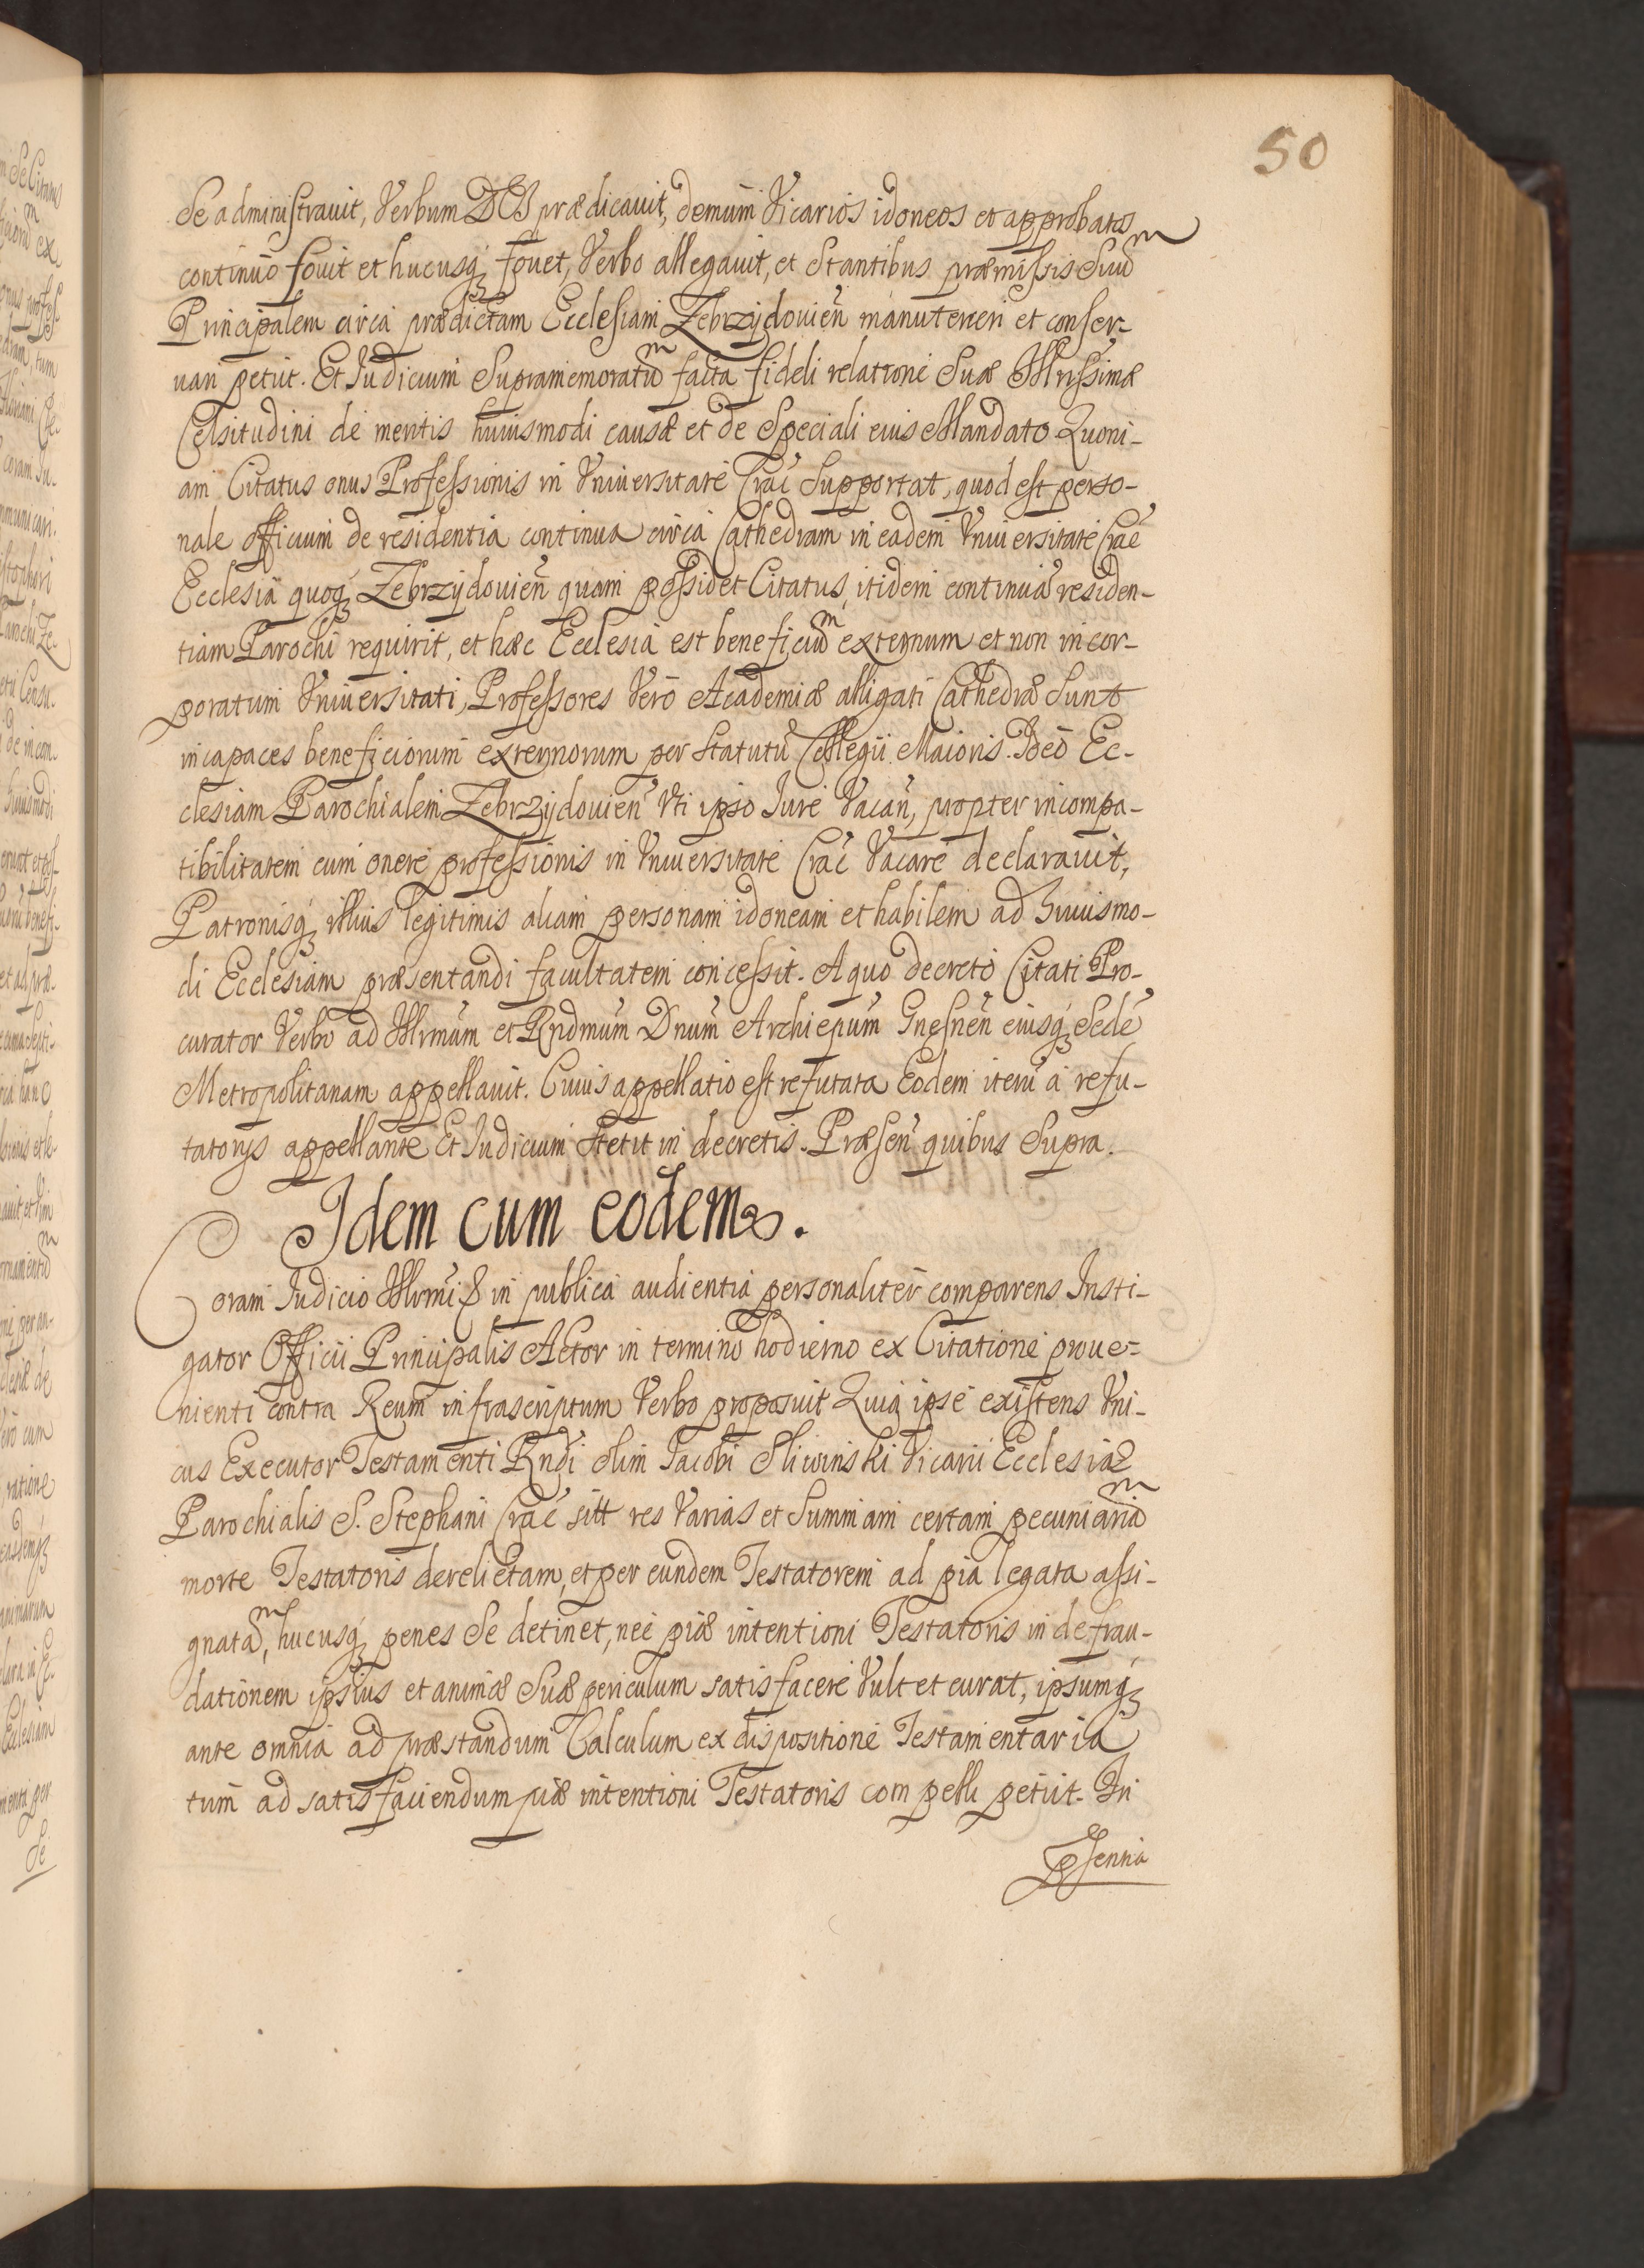 50
Se administrauit, Verbum DEI prædicauit, demum Vicarios idoneos et approbatos
continuo fouit et hucusq; fouet, Verbo allegauit, et Stantibus præmissis Suũm
Principalem circa prædictam Ecclesiam Zebrzydouieñ manuteneri et conser-
uari petijt. Et Iudicium Supramemoratũm facta fideli relatione Suæ Illrissimæ
Celsitudini de meritis huiusmodi causæ et de Speciali eius Mandato Quoni-
am Citatus onus Professionis in Vniuersitate Crac̃ Supportat, quod est perso-
nale officium de residentia continua circa Cathedram in eadem Vniuersitate Crac̃
Ecclesia quoq; Zebrzydouieñ quam possidet Citatus, itidem continuã residen-
tiam Parochi requirit, et hæc Ecclesia est beneficiũm externum et non incor-
poratum Vniuersitati, Professores Vero Academiæ alligati Cathedræ Sunt
incapaces beneficiorum externorum per Statutũ Collegii Maioris. Ideo Ec-
clesiam Parochialem Zebrzydouieñ Vti ipso Iure Vacañ, propter incompa-
tibilitatem cum onere professionis in Vniuersitate Crac̃ Vacare declarauit,
Patronisq; illius legitimis aliam personam idoneam et habilem ad huiusmo-
di Ecclesiam præsentandi facultatem concessit. A quo decreto Citati Pro-
curator Verbo ad Illrmum et Rndmum Dnum Archiepum Gnesneñ eiusq; Sedẽ
Metropolitanam appellauit. Cuius appellatio est refutata Eodem iterũ a refu-
tatorijs appellante Et Iudicium Stetit in decretis. Præseñ quibus Supra.
Idem cum eodem.
Coram Iudicio Illrmi & in publica audientia personaliter comparens Insti-
gator Officii Principalis Actor in termino hodierno ex Citatione proue-
nienti contra Reum infrascriptum Verbo proposuit Quia ipse existens Vni-
cus Executor Testamenti Rndi olim Iacobi Sliwinski Vicarii Ecclesiæ
Parochialis S. Stephani Crac̃ sitt res Varias et Summam certam pecuniariãm
morte Testatoris derelictam, et per eundem Testatorem ad pia legata assi-
gnatãm, hucusq; penes Se detinet, nec piæ intentioni Testatoris in defrau-
dationem ipsius et animæ Suæ periculum satisfacere Vult et curat, ipsumq;
ante omnia ad præstandum Calculum ex dispositione Testamentaria
tum ad satisfaciendum piæ intentioni Testatoris compelli petiit. In
pñsentia